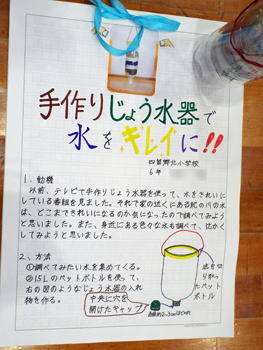 手作りじょう水器で
水をキレイに!!
四箇郷北小学校
6年
1. 動機
以前、テレビで手作りじょう水器を使って、水をきれいに
している番組を見ました。それで家の近くにある紀の川の水
は、どこまできれいになるのか気になったので調べてみよう
と思いました。また、身近にある色々な水も調べて、比か
くしてみようと思いました。
2、方法
①調べてみたい水を集めてくる。
②1.5Lのペットボトルを使って、
右の図のようなじょう水器の入れ
物を作る。
中央に穴を
開けたキャップ
底を切
り取っ
たペット
ボトル